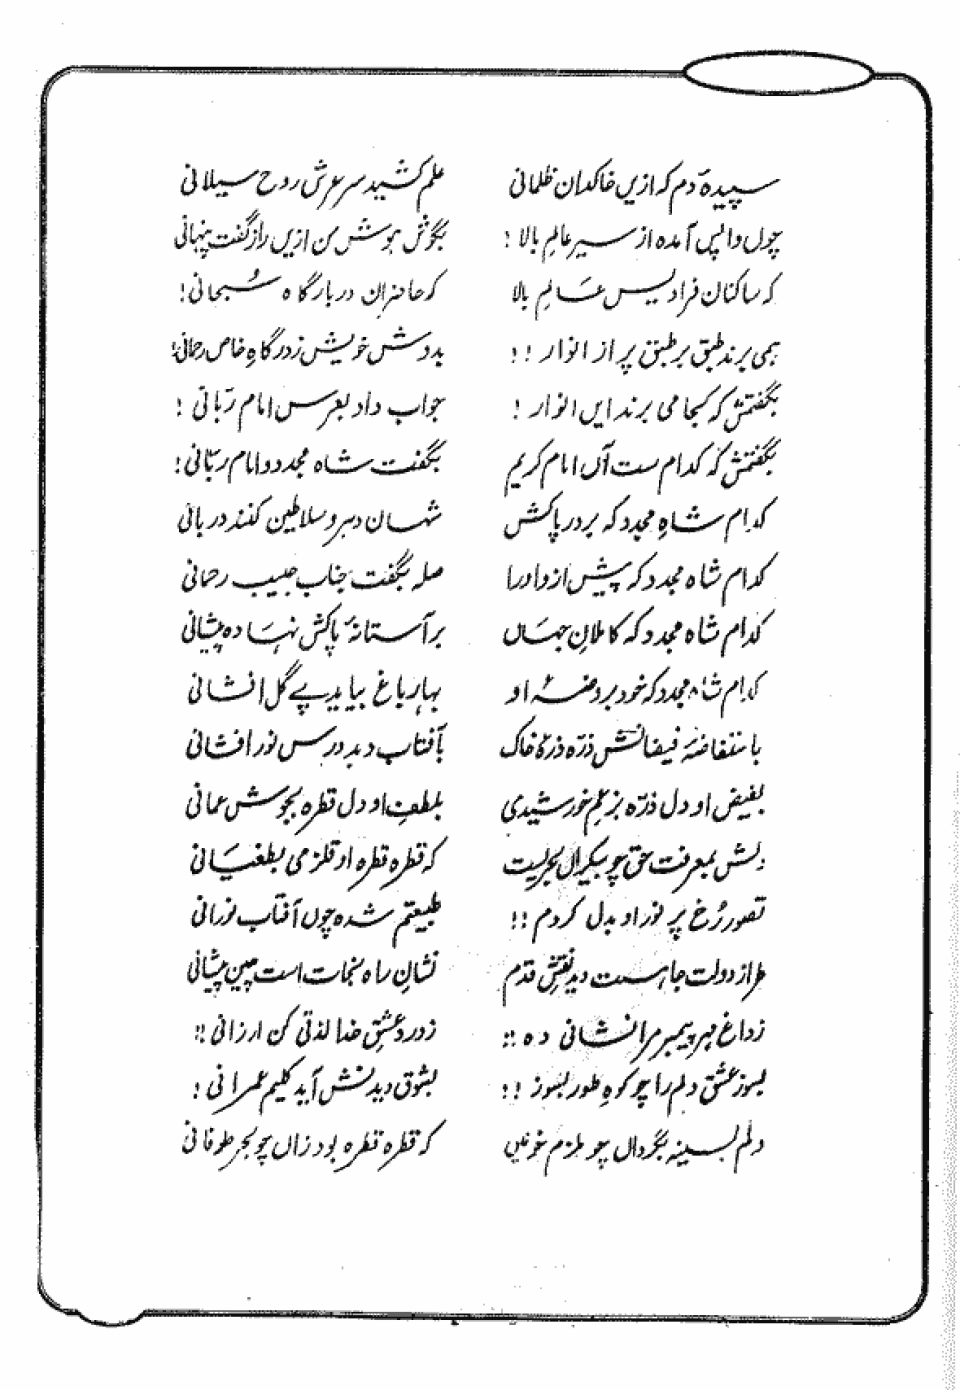 سپیدہ دم کہ ازیں خاکدان ظلمانی علم کشید سر عرش روح سیلانی
چوں واپس آمدہ از سیر عالمِ بالا ! بگوش ہوش من ازیں راز گفت پنہانی
کہ ساکنان فرادیس عالمِ بالا کہ حاضرانِ دربارگاہ سُبحانی !
ہمی برند طبق بر طبق پر از انوار !! بدوش خویش ز درگاہِ خاص رحمانی !
بگفتمش کہ کجا می برند ایں انوار ! جواب داد بعرس امام ربّانی !
بگفتمش کہ کدام ست آں امام کریم بگفت شاہ مجدد و امام ربّانی !
کدام شاہِ مجدد کہ بر در پاکش شہان دہر و سلاطین کنند دربانی
کدام شاہ مجدد کہ پیش ازو او را صلہ بگفت جناب حبیب رحمانی
کدام شاہ مجدد کہ کاملانِ جہاں بر آستانۂ پاکش نہادہ پیشانی
کدام شاہ مجدد کہ خود بروضۂ او بہار باغ بیاید پے گل افشانی
باستفاضۂ فیضانش ذرّہ ذرّۂ خاک بآفتاب دہد درس نور افشانی
بفیض او دل ذرّہ بزعم خورشیدی بلطفِ او دل قطرہ بجوش عمانی
دلش بمعرفت حق چو بیکراں بحریست کہ قطرہ قطرہ او قلزمی بطغیانی
تصور رُخ پر نور او بدل کردم !! طبیعتم شدہ چوں آفتاب نورانی
طراز دولت جاہست دید نقشِ قدم نشانِ راہ نجات است چین پیشانی
زداغ مہر پیمبر مرا نشانی دہ !! ز درد عشق خدا لذتی کن ارزانی !!
بسوز عشق دلم را چو کوہِ طور بسوز !! بشوق دیدنش آید کلیم عمرانی !
دلم بسینہ بگرداں چو قلزم خونیں کہ قطرہ قطرہ بود زاں چو بحر طوفانی